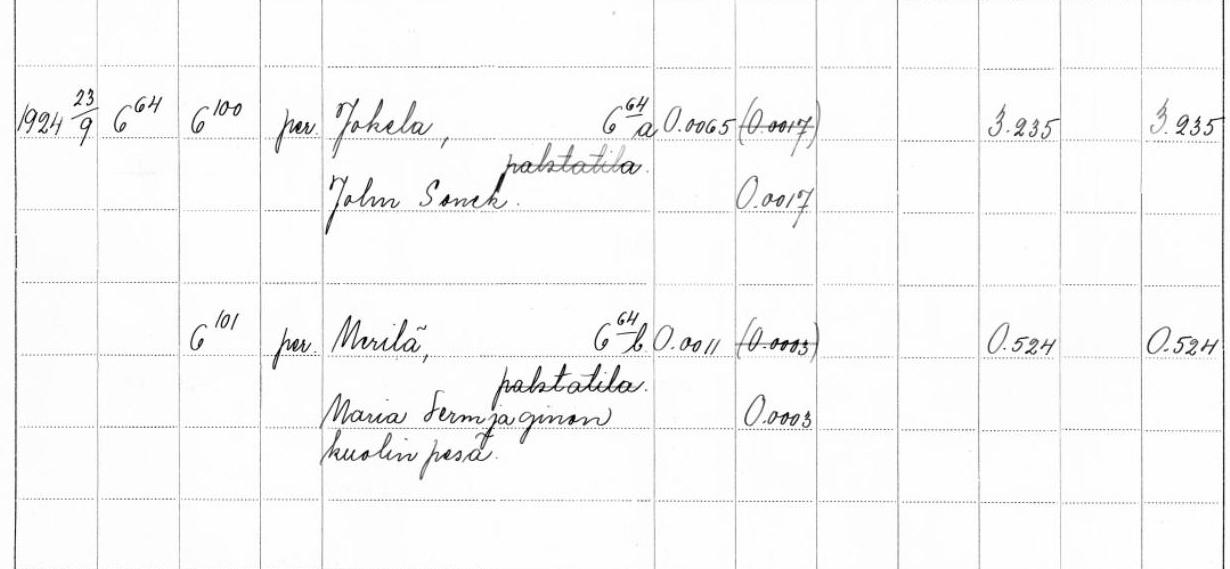 1924 23/9 6^64 6^100 per. Jokela, 6^64 a 0.0065 (0.0017) 3.235 3.235
palstatila.
John Sonck. 0.0017
6^101 per. Merilä, 6^64 b 0.0011 (0.0003) 0.524 0.524
palstatila.
Maria Sermjaginon 0.0003
kuolin pesä.